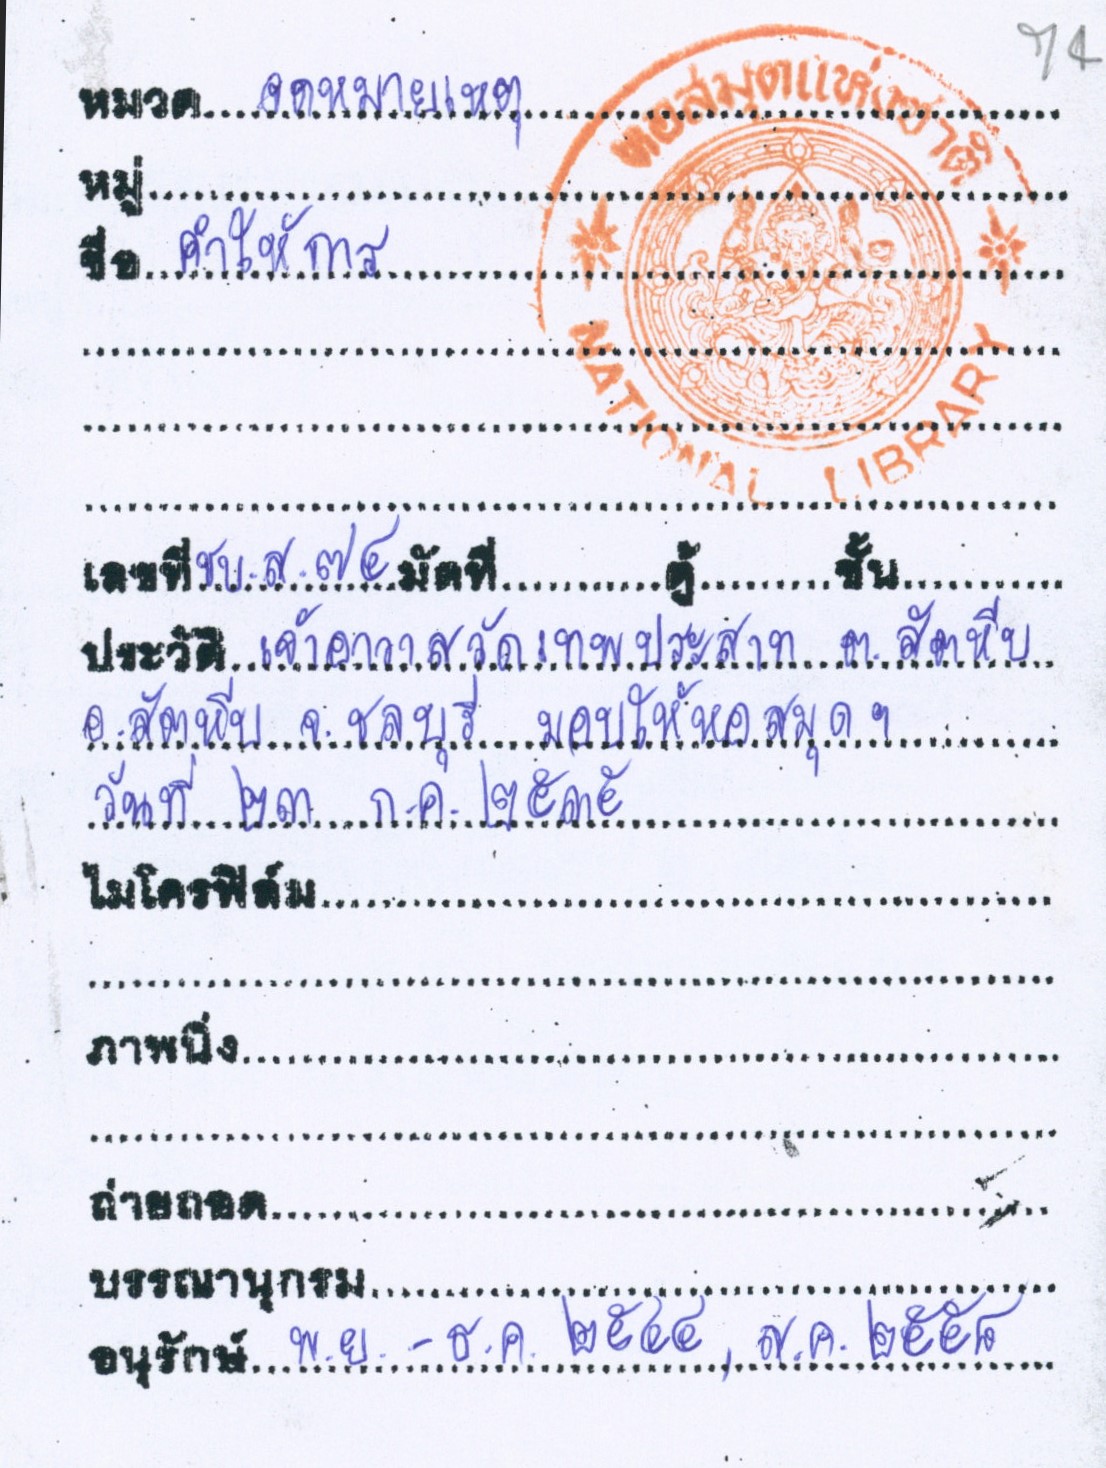 74
หอสมุดแห่งชาติ
NATIONAL LIBRARY
หมวด จดหมายเหตุ
หมู่
ชื่อ คำให้การ
เลขที่ ชบ.ส.๗๔ มัดที่ ตู้ ชั้น
ประวัติ เจ้าอาวาสวัดเทพประสาท ต.สัตหีบ
อ.สัตหีบ จ.ชลบุรี มอบให้หอสมุดฯ
วันที่ ๒๓ ก.ค. ๒๕๓๕
ไมโครฟิล์ม
ภาพนิ่ง
ถ่ายถอด
บรรณานุกรม
อนุรักษ์ พ.ย. - ธ.ค. ๒๕๔๔, ส.ค. ๒๕๕๘